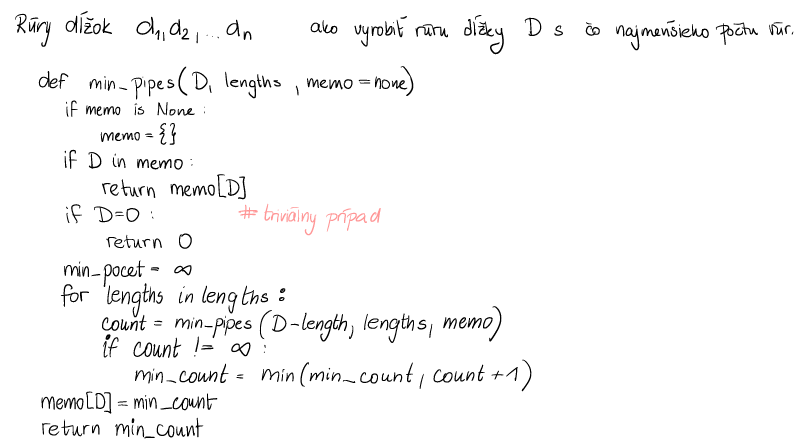 Rúry dĺžok d1, d2, ... dn ako vyrobiť rúru dĺžky D s čo najmenšieho počtu rúr.
def min_pipes(D, lengths, memo=none)
if memo is None:
memo = {}
if D in memo:
return memo[D]
if D=0: # triviálny prípad
return 0
min_pocet = ∞
for lengths in lengths:
count = min_pipes(D-length, lengths, memo)
if count != ∞:
min_count = min(min_count, count+1)
memo[D] = min_count
return min_count